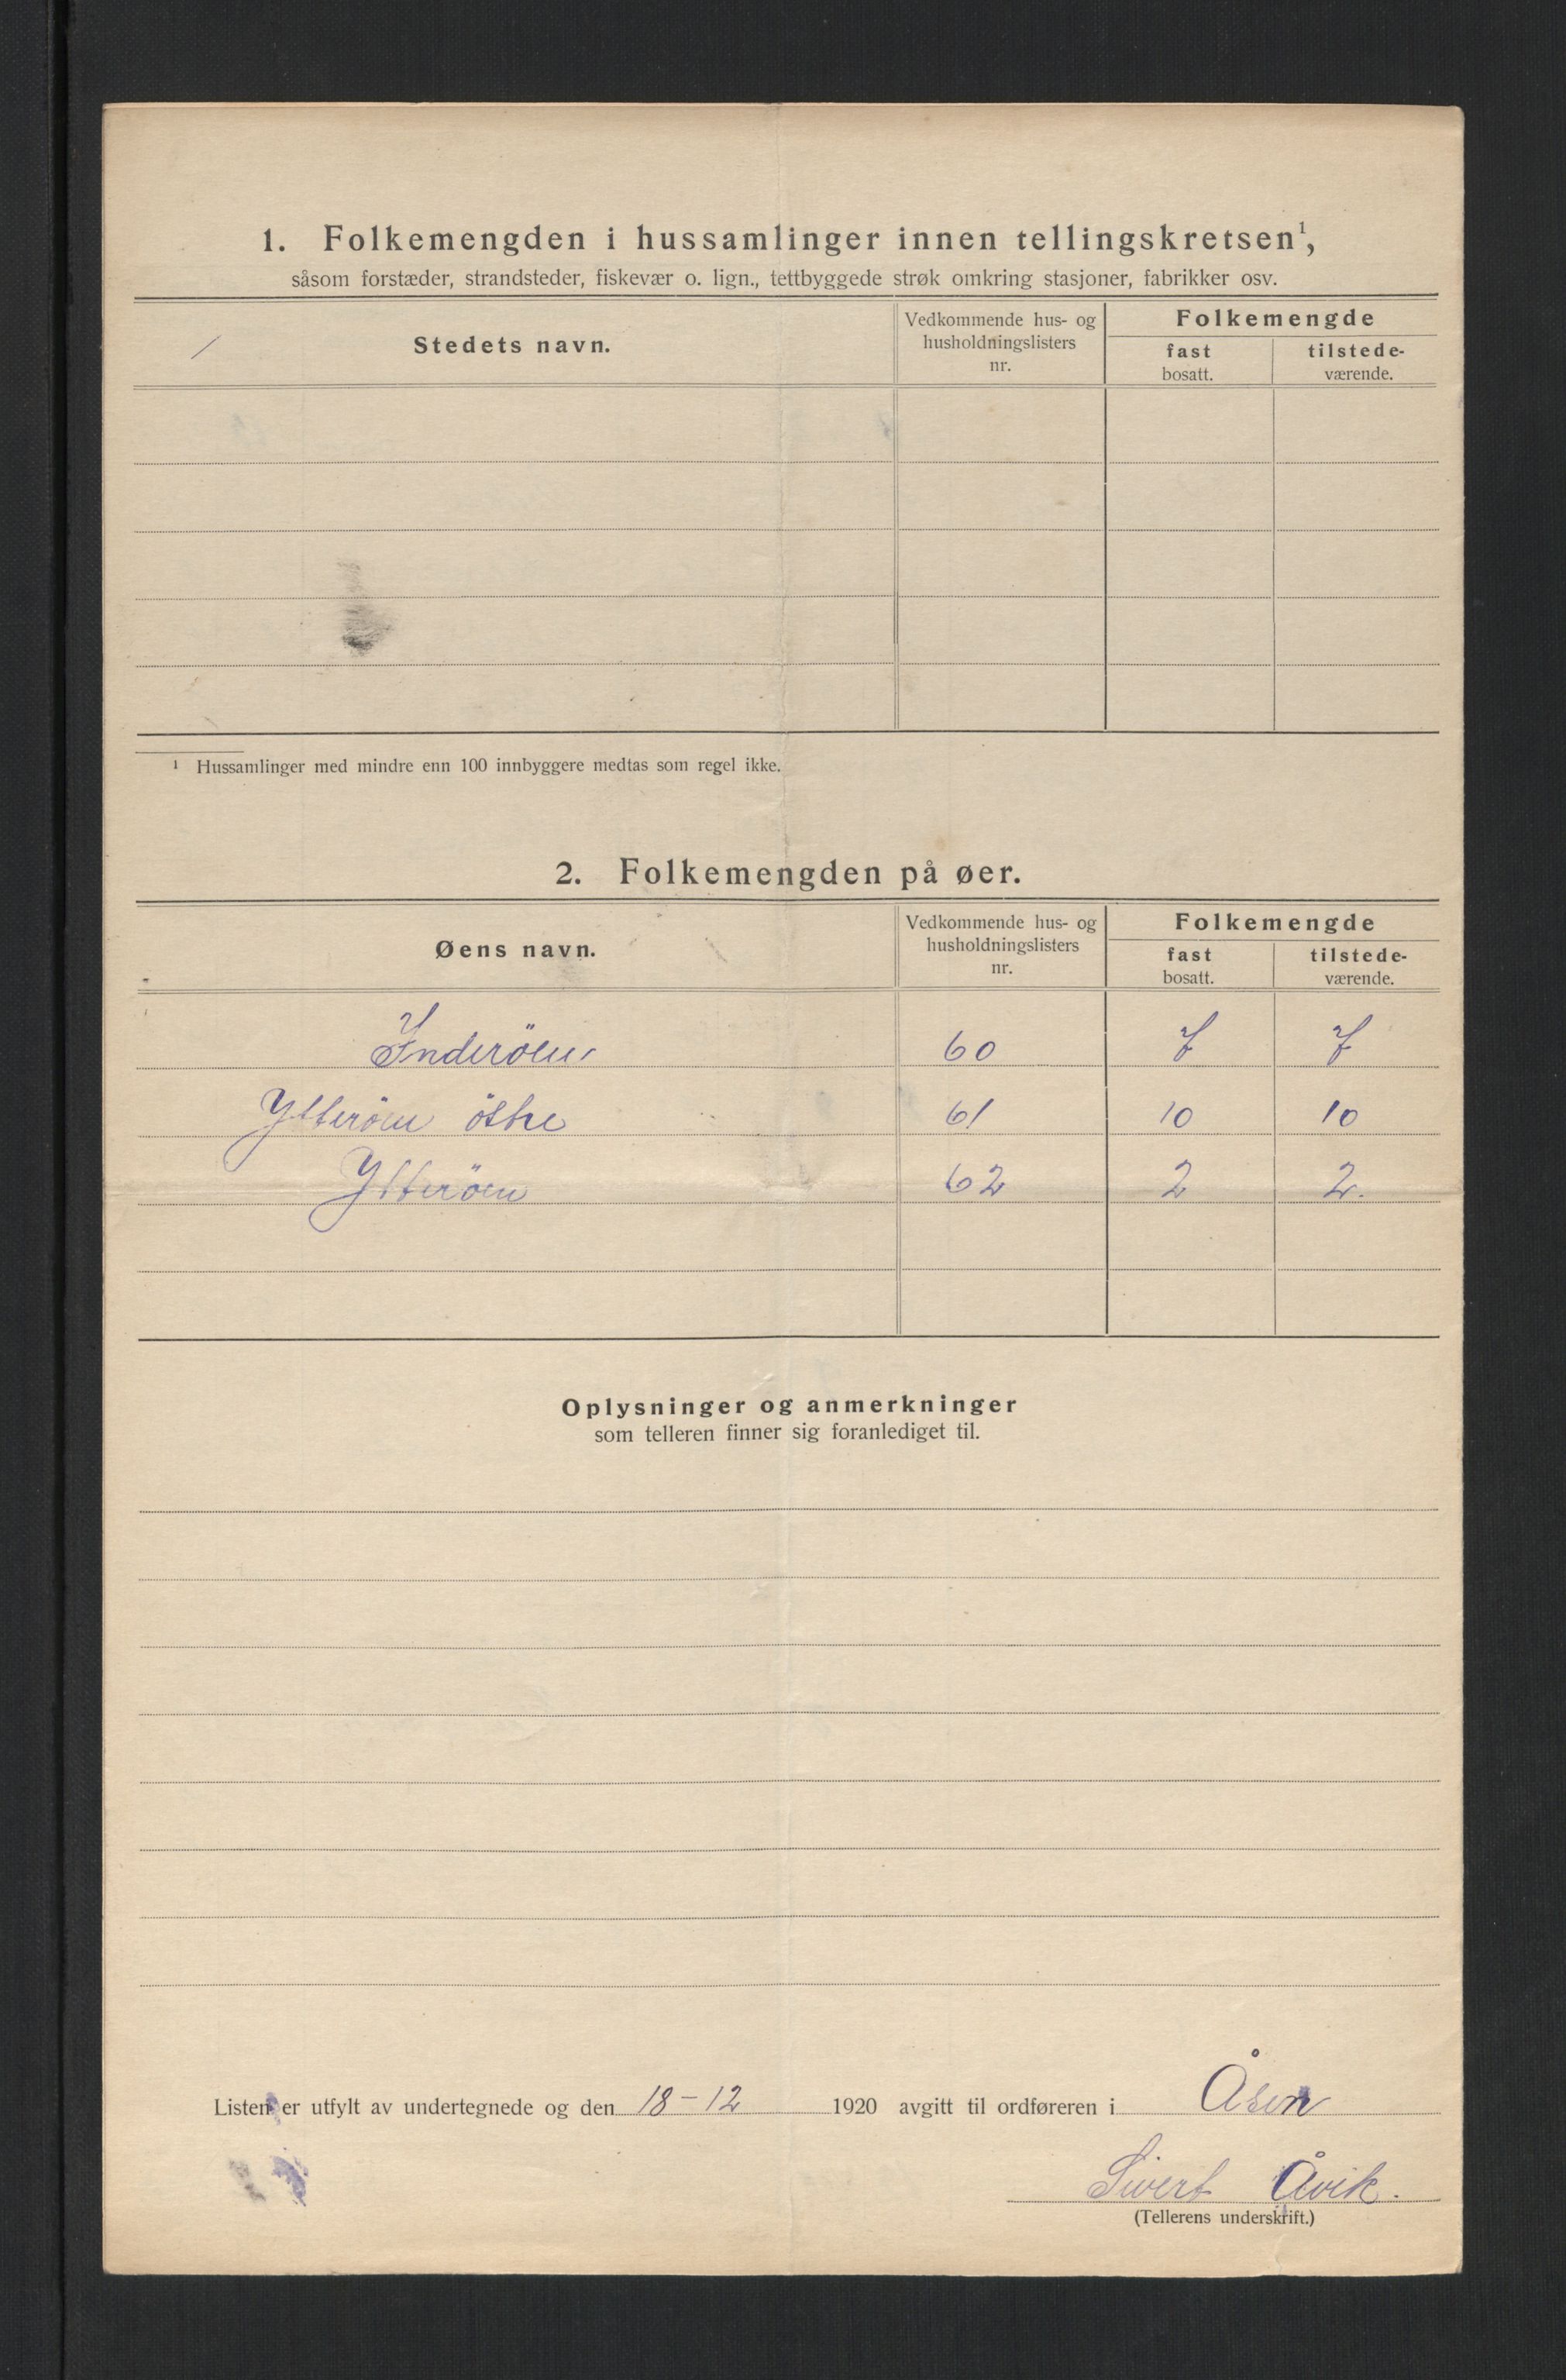 1. Folkemengden i hussamlinger innen tellingskretsen¹,
såsom forstæder, strandsteder, fiskevær o. lign., tettbyggede strøk omkring stasjoner, fabrikker osv.
Stedets navn.
Vedkommende hus- og
husholdningslisters
nr.
Folkemengde
fast
bosatt.
tilstede-
værende.
¹ Hussamlinger med mindre enn 100 innbyggere medtas som regel ikke.
2. Folkemengden på øer.
Øens navn.
Vedkommende hus- og
husholdningslisters
nr.
Folkemengde
fast
bosatt.
tilstede-
værende.
Inderöen 60 7 7
Ytteröen östre 61 10 10
Ytteröen 62 2 2.
Oplysninger og anmerkninger
som telleren finner sig foranlediget til.
Listen er utfylt av undertegnede og den 18-12 1920 avgitt til ordføreren i Åsen
Sivert Åvik.
(Tellerens underskrift.)